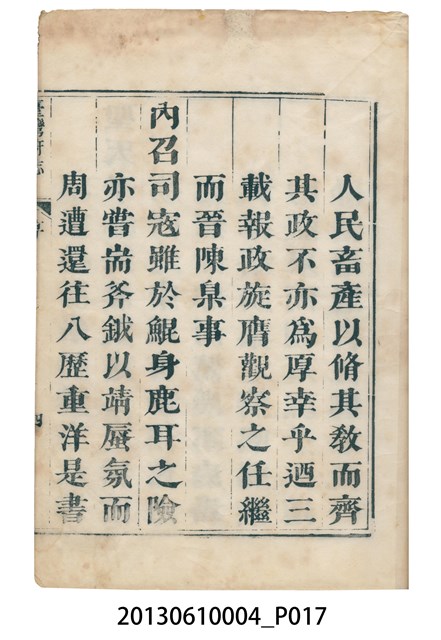 人民畜產以脩其敎而齊
其政不亦爲厚幸乎迺三
載報政旋膺觀察之任繼
而晉陳臬事
內召司寇雖於鯤身鹿耳之險
亦嘗耑斧鉞以靖蜃氛而
周遭還往八歷重洋是書
臺灣府志
序
四
20130610004_P017